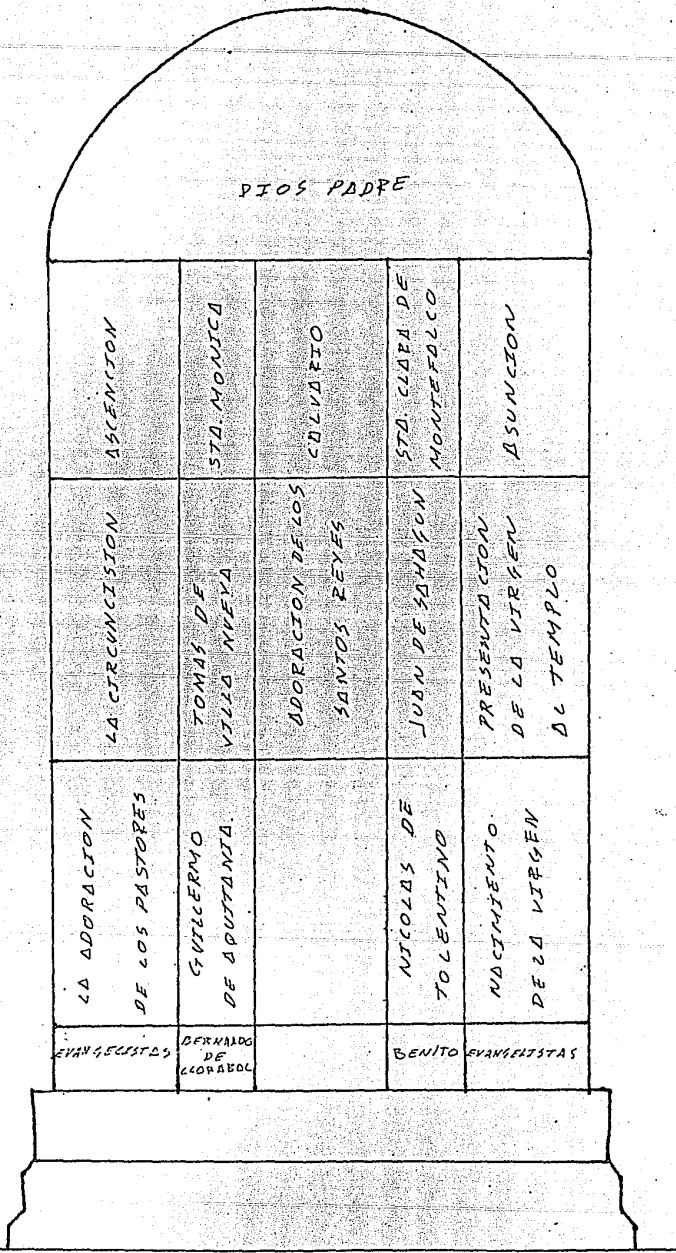 DIOS PADRE
ASCENCION
STA. MONICA
CALVARIO
STA. CLARA DE
MONTEFALCO
ASUNCION
LA CIRCUNCISION
TOMAS DE
VILLA NUEVA
ADORACION DE LOS
SANTOS REYES
JUAN DE SAHAGUN
PRESENTACION
DE LA VIRGEN
AL TEMPLO
LA ADORACION
DE LOS PASTORES
GUILLERMO
DE AQUITANIA.
NICOLAS DE
TOLENTINO
NACIMIENTO.
DE LA VIRGEN
EVANGELISTAS
BERNALDO
DE
BENITO
EVANGELISTAS